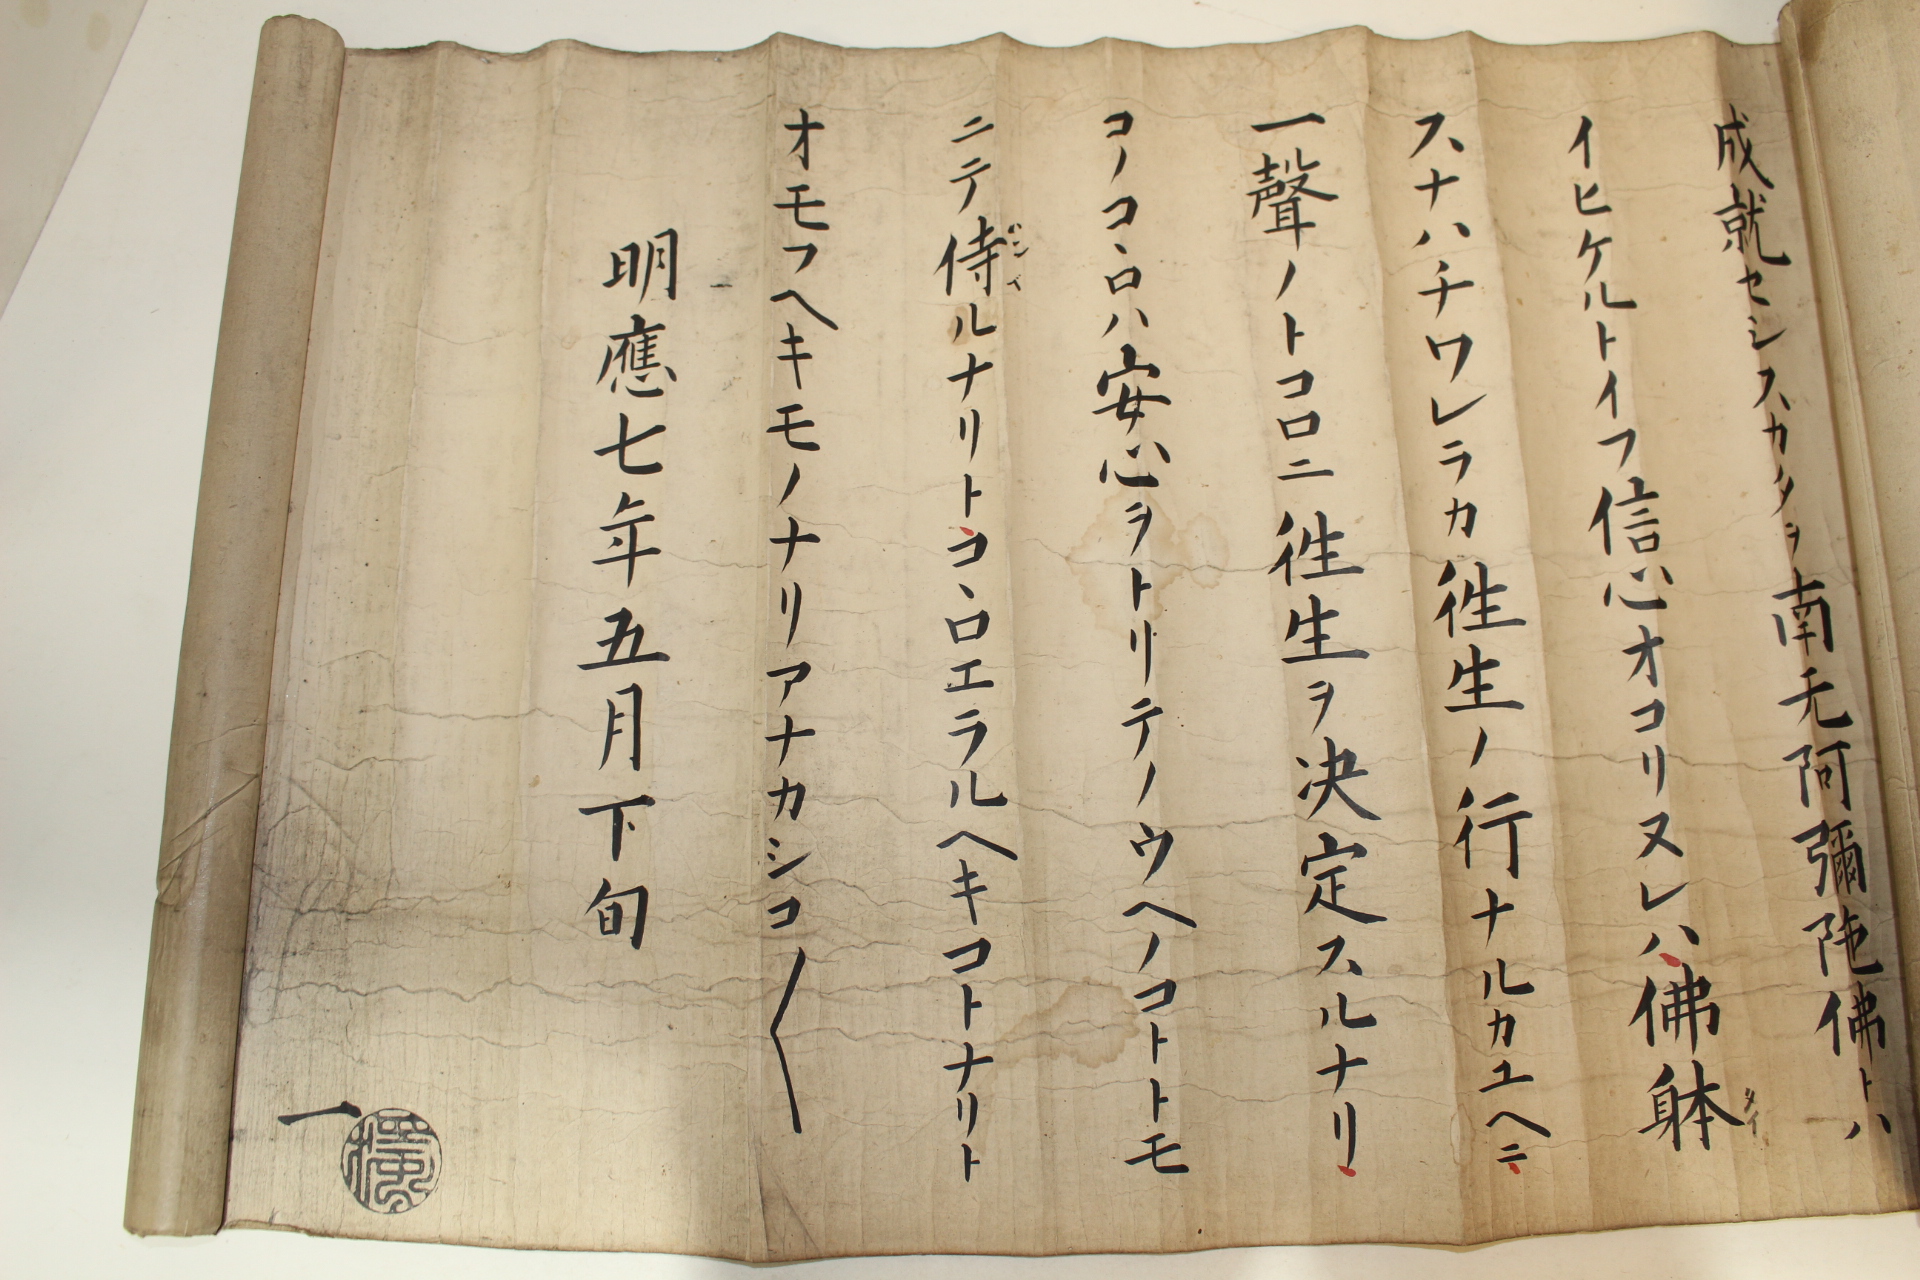 成就セシスカタヲ南无阿彌陁佛トハ
イヒケルトイフ信心オコリヌレハ佛躰
タイ
スナハチワレラカ徃生ノ行ナルカユヘニ
一聲ノトコロニ徃生ヲ决定スルナリ
コノコヽロハ安心ヲトリテノウヘノコトトモ
ニテ侍ルナリトコヽロエラルヘキコトナリト
ハンヘ
オモフヘキモノナリアナカシコ〱
明應七年五月下旬
一